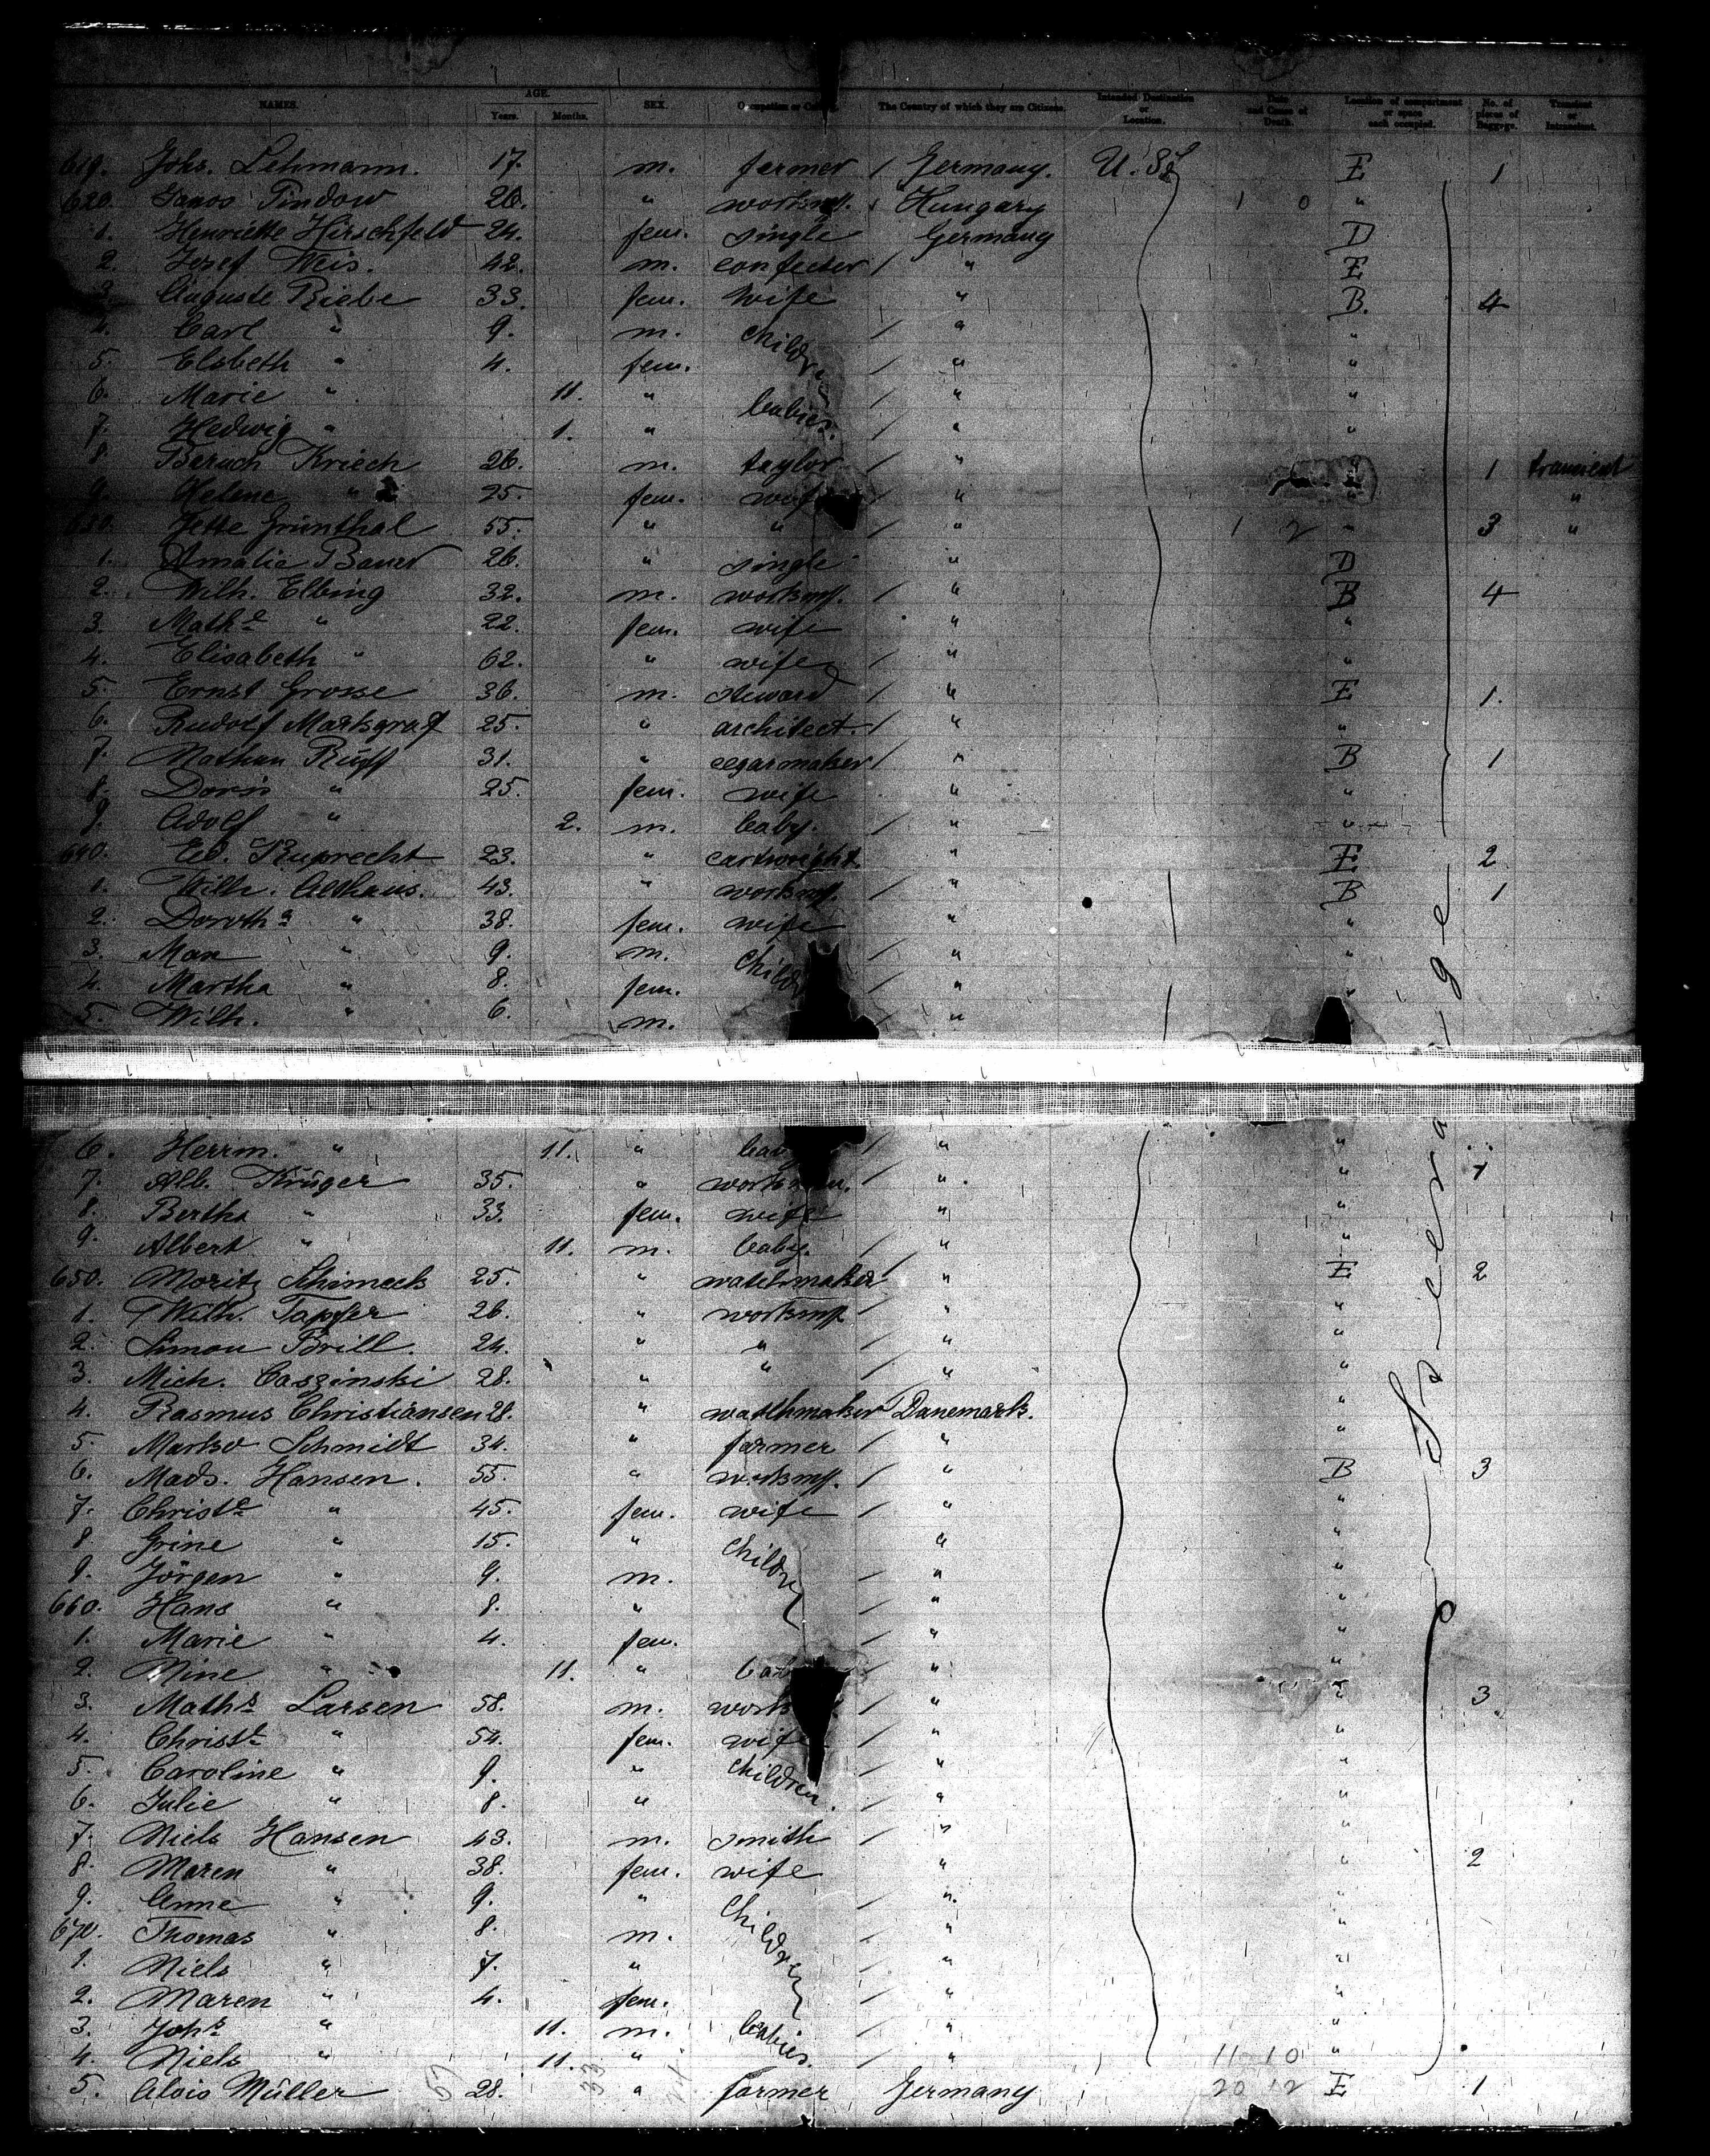 NAMES. AGE. Years. Months. SEX. Occupation or The Country of which they are Citizens. Intended Destination or Location. Date and Cause of Death. Location of compartment or space each occupied. No. of pieces of Baggage. Transient or Intransient.
619. Johs. Lehmann. 17. m. farmer / Germany. U. S. E 1
620. Pindow 26. " workmn. Hungary 1 0 "
1. Henriette Hirschfeld 24. fem. single Germany D
2. Josef Weis. 42. m. confecter / " E
3. Auguste Riebe 33. fem. wife " B. 4
4. Carl " 9. m. children / " "
5. Elsbeth " 4. fem. / " "
6. Marie " 11. " babies. / " "
7. Hedwig " 1. " / " "
8. Baruch Kriech 26. m. taylor / " " 1 transient
9. Helene " 25. fem. wife " " "
630. Jette Grünthal 55. " " / " 1 2 " 3 "
1. Amalie Bauer 26. " single " D
2. Wilh. Elbing 32. m. workmn. / " B 4
3. Mathe " 22. fem. wife " "
4. Elisabeth " 62. " wife / " "
5. Ernst Grosse 36. m. steward / " E 1.
6. Rudolf Marksgraf 25. " architect. / " "
7. Nathan Ruff 31. " cegarmaker / " B 1
8. Doris " 25. fem. wife " "
9. Adolf " 2. m. baby. / " "
640. Ed. Ruprecht 23. " cartwright. " E 2
1. Wilh. Althaus. 43. " workmn. / " B 1
2. Dorotha " 38. fem. wife " "
3. Max " 9. m. child / " "
4. Martha " 8. fem. / " "
5. Wilh. " 6. m. / "
6. Herrm. " 11. " / " "
7. Alb. Krüger 35. " workmn. " " 1
8. Bertha " 33. fem. wife " "
9. Albert " 11. m. baby. / " "
650. Moritz Schimeck 25. " watchmaker / " E 2
1. Wilh. Tapfer 26. " workmn / " "
2. Simon Brill. 24. " " / " "
3. Mich. Caszinski 28. " " / " "
4. Rasmus Christiansen 28. " wathmaker Danemark. "
5. Marko Schmidt 34. " farmer / " "
6. Mads. Hansen. 55. " workmn. / " B 3
7. Christe " 45. fem. wife / " "
8. Grine " 15. " children " "
9. Jörgen " 9. m. / " "
660. Hans " 8. " / " "
1. Marie " 4. fem. / " "
2. Mine " 11. " / " "
3. Maths Larsen 58. m. work / " " 3
4. Christe " 54. fem. wife / " "
5. Caroline " 9. " children. / " "
6. Julie " 8. " / " "
7. Niels Hansen 43. m. smith / " "
8. Maren " 38. fem. wife " " 2
9. Anne " 9. " children / " "
670. Thomas " 8. m. / " "
1. Niels " 7. " / " "
2. Maren " 4. fem. / " "
3. Johs " 11. m. babies. / " "
4. Niels " 11. " / " 11 10 "
5. Alois Müller 28. " farmer Germany 20 12 E 1
Steerage